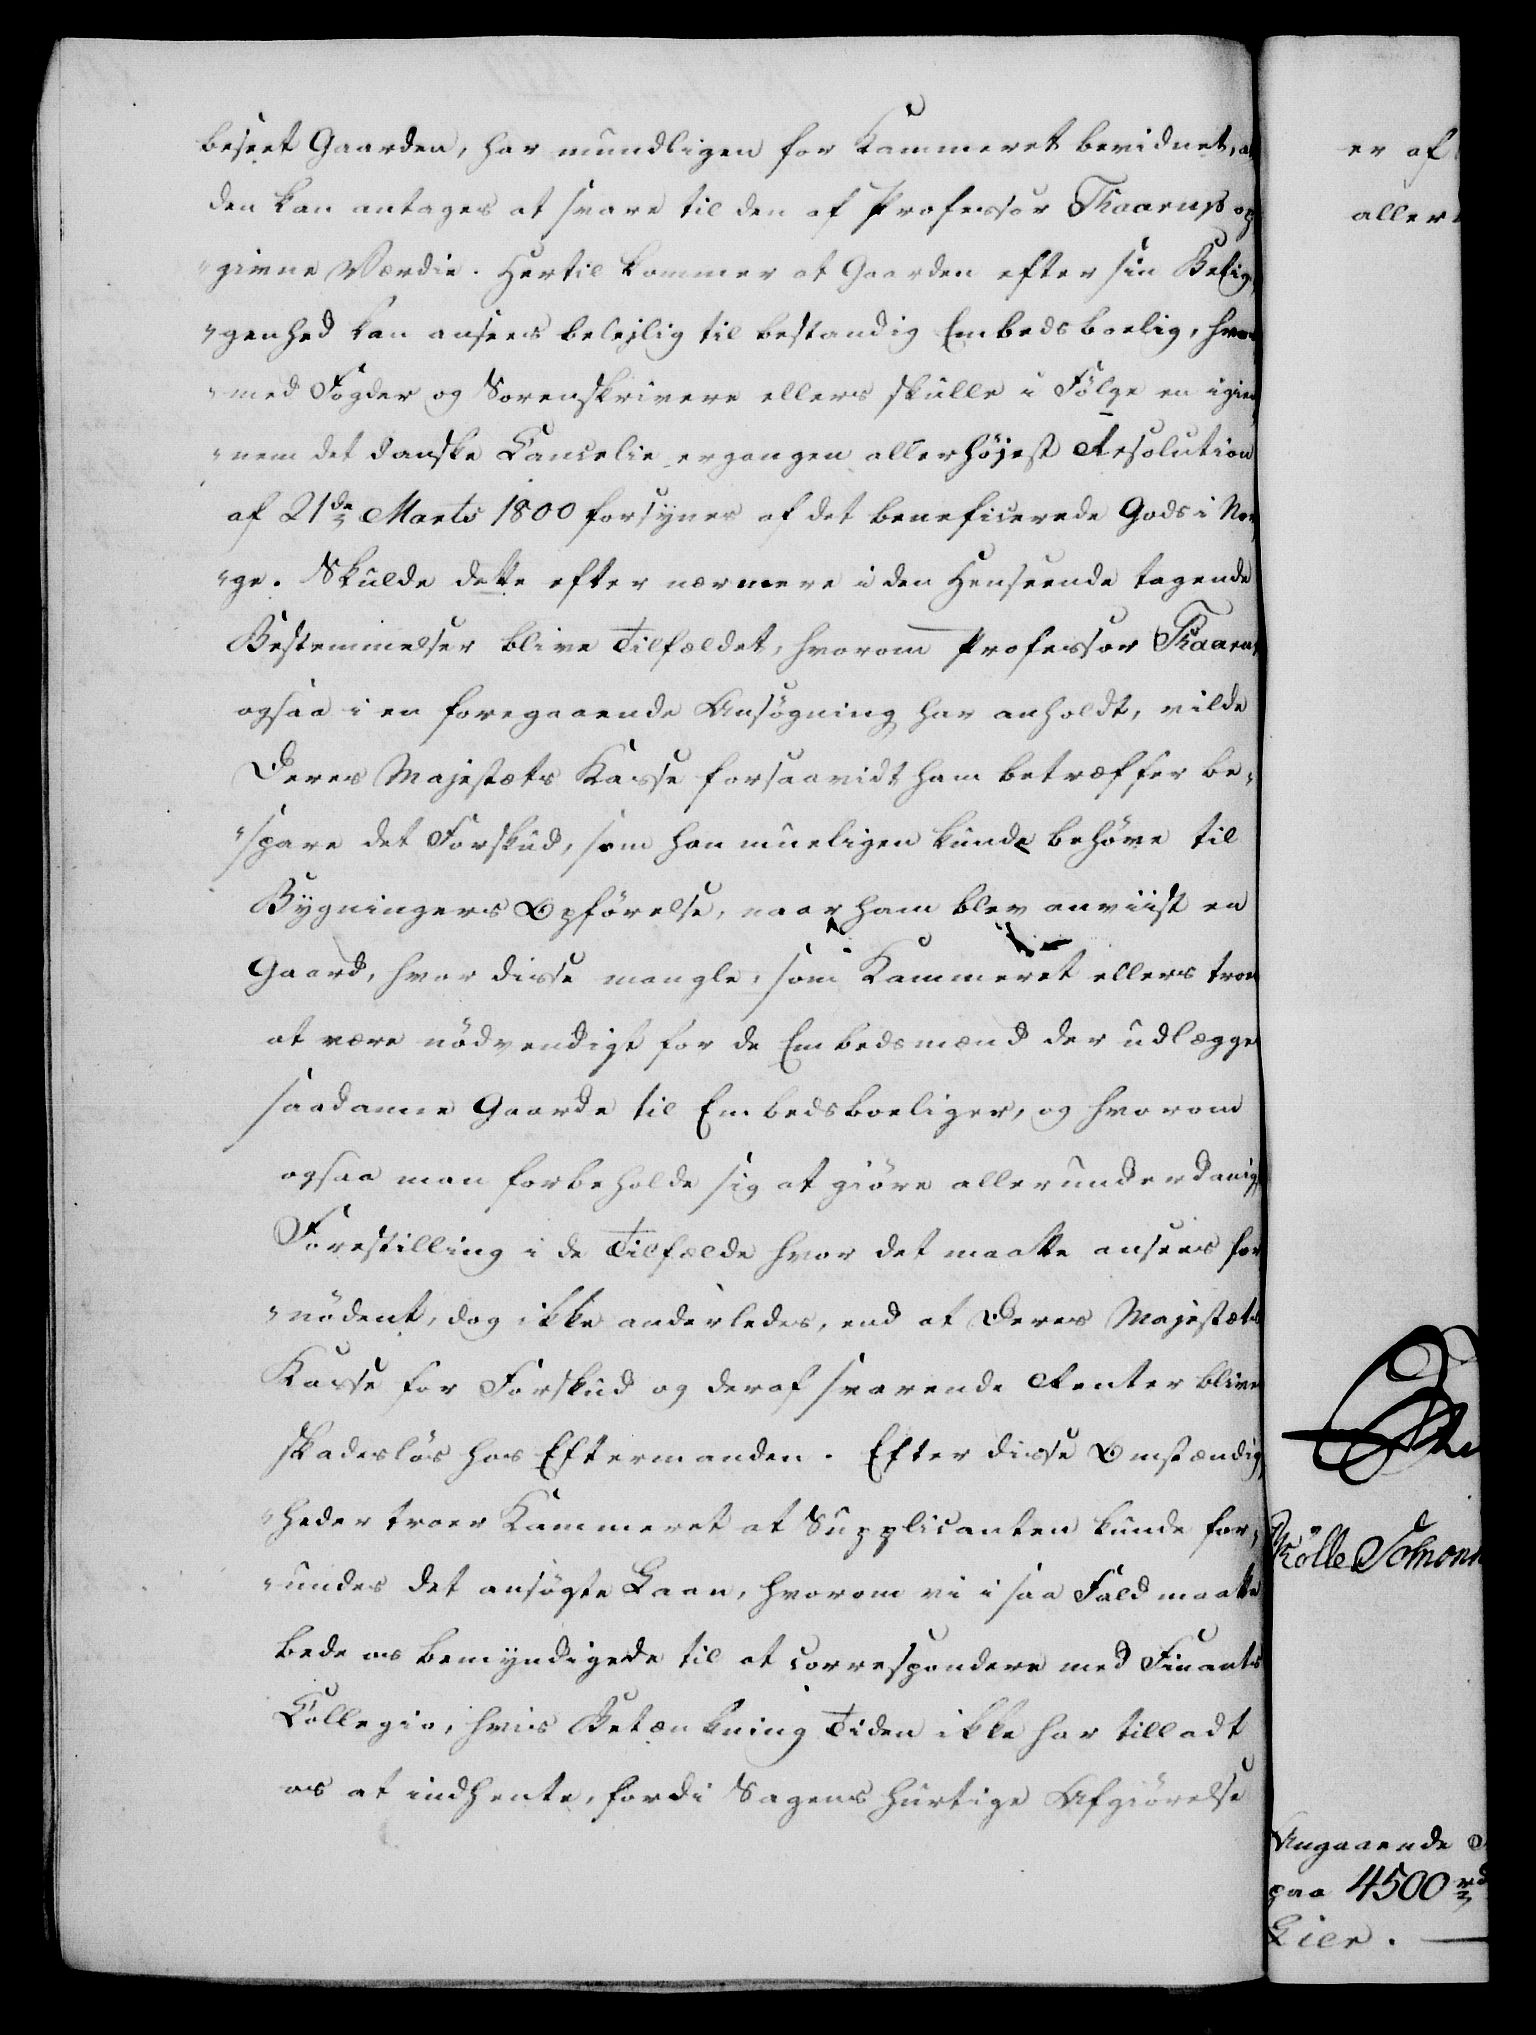 beseet Gaarden, har mundligen for Kammeret bevidnet, at
den kan antages at svare til den af Professor Thaarup op
givne Værdie. Hertil kommer at Gaarden efter sin Belig
genhed kan ansees belejlig til bestandig Embedsboelig, hvor
med Fogder og Sorenskrivere ellers skulle i Følge en igien
nem det danske Cancelie ergangen allerhøjest Resolution
af 21de Marts 1800 forsynes af det beneficerede Gods i Nor
ge. Skulde dette efter nærmere i den Henseende tagende
Bestemmelser blive Tilfældet, hvorom Professor Thaarup
ogsaa i en foregaaende Ansøgning har anholdt, vilde
Deres Majestæts Kasse forsaavidt ham betræffer be-
spare det Forskud, som han mueligen kunde behøve til
Bygningers Opførelse, naar ham blev anviist en
Gaard, hvor disse mangle, som Kammeret ellers troer
at være nødvendigt for de Embedsmænd der udlægges
saadanne Gaarde til Embedsboeliger, og hvorom
ogsaa man forbeholde sig at giøre allerunderdanigst
Forestilling i de Tilfælde hvor det maatte ansees for
nødent, dog ikke anderledes, end at Deres Majestæts
Kasse for Forskud og deraf svarende Renter bliver
skadesløs hos Eftermanden. Efter disse Omstændig
heder troer Kammeret at Supplicanten kunde for-
undes det ansøgte Laan, hvorom vi i saa Fald maatte
bede os bemyndigede til at correspondere med Finants
Collegio, hvis Betænkning Tiden ikke har tilladt
os at indhente, fordi Sagens hurtige Afgiørelse
er af
aller
Angaaende
paa 4500 rd
Lier.